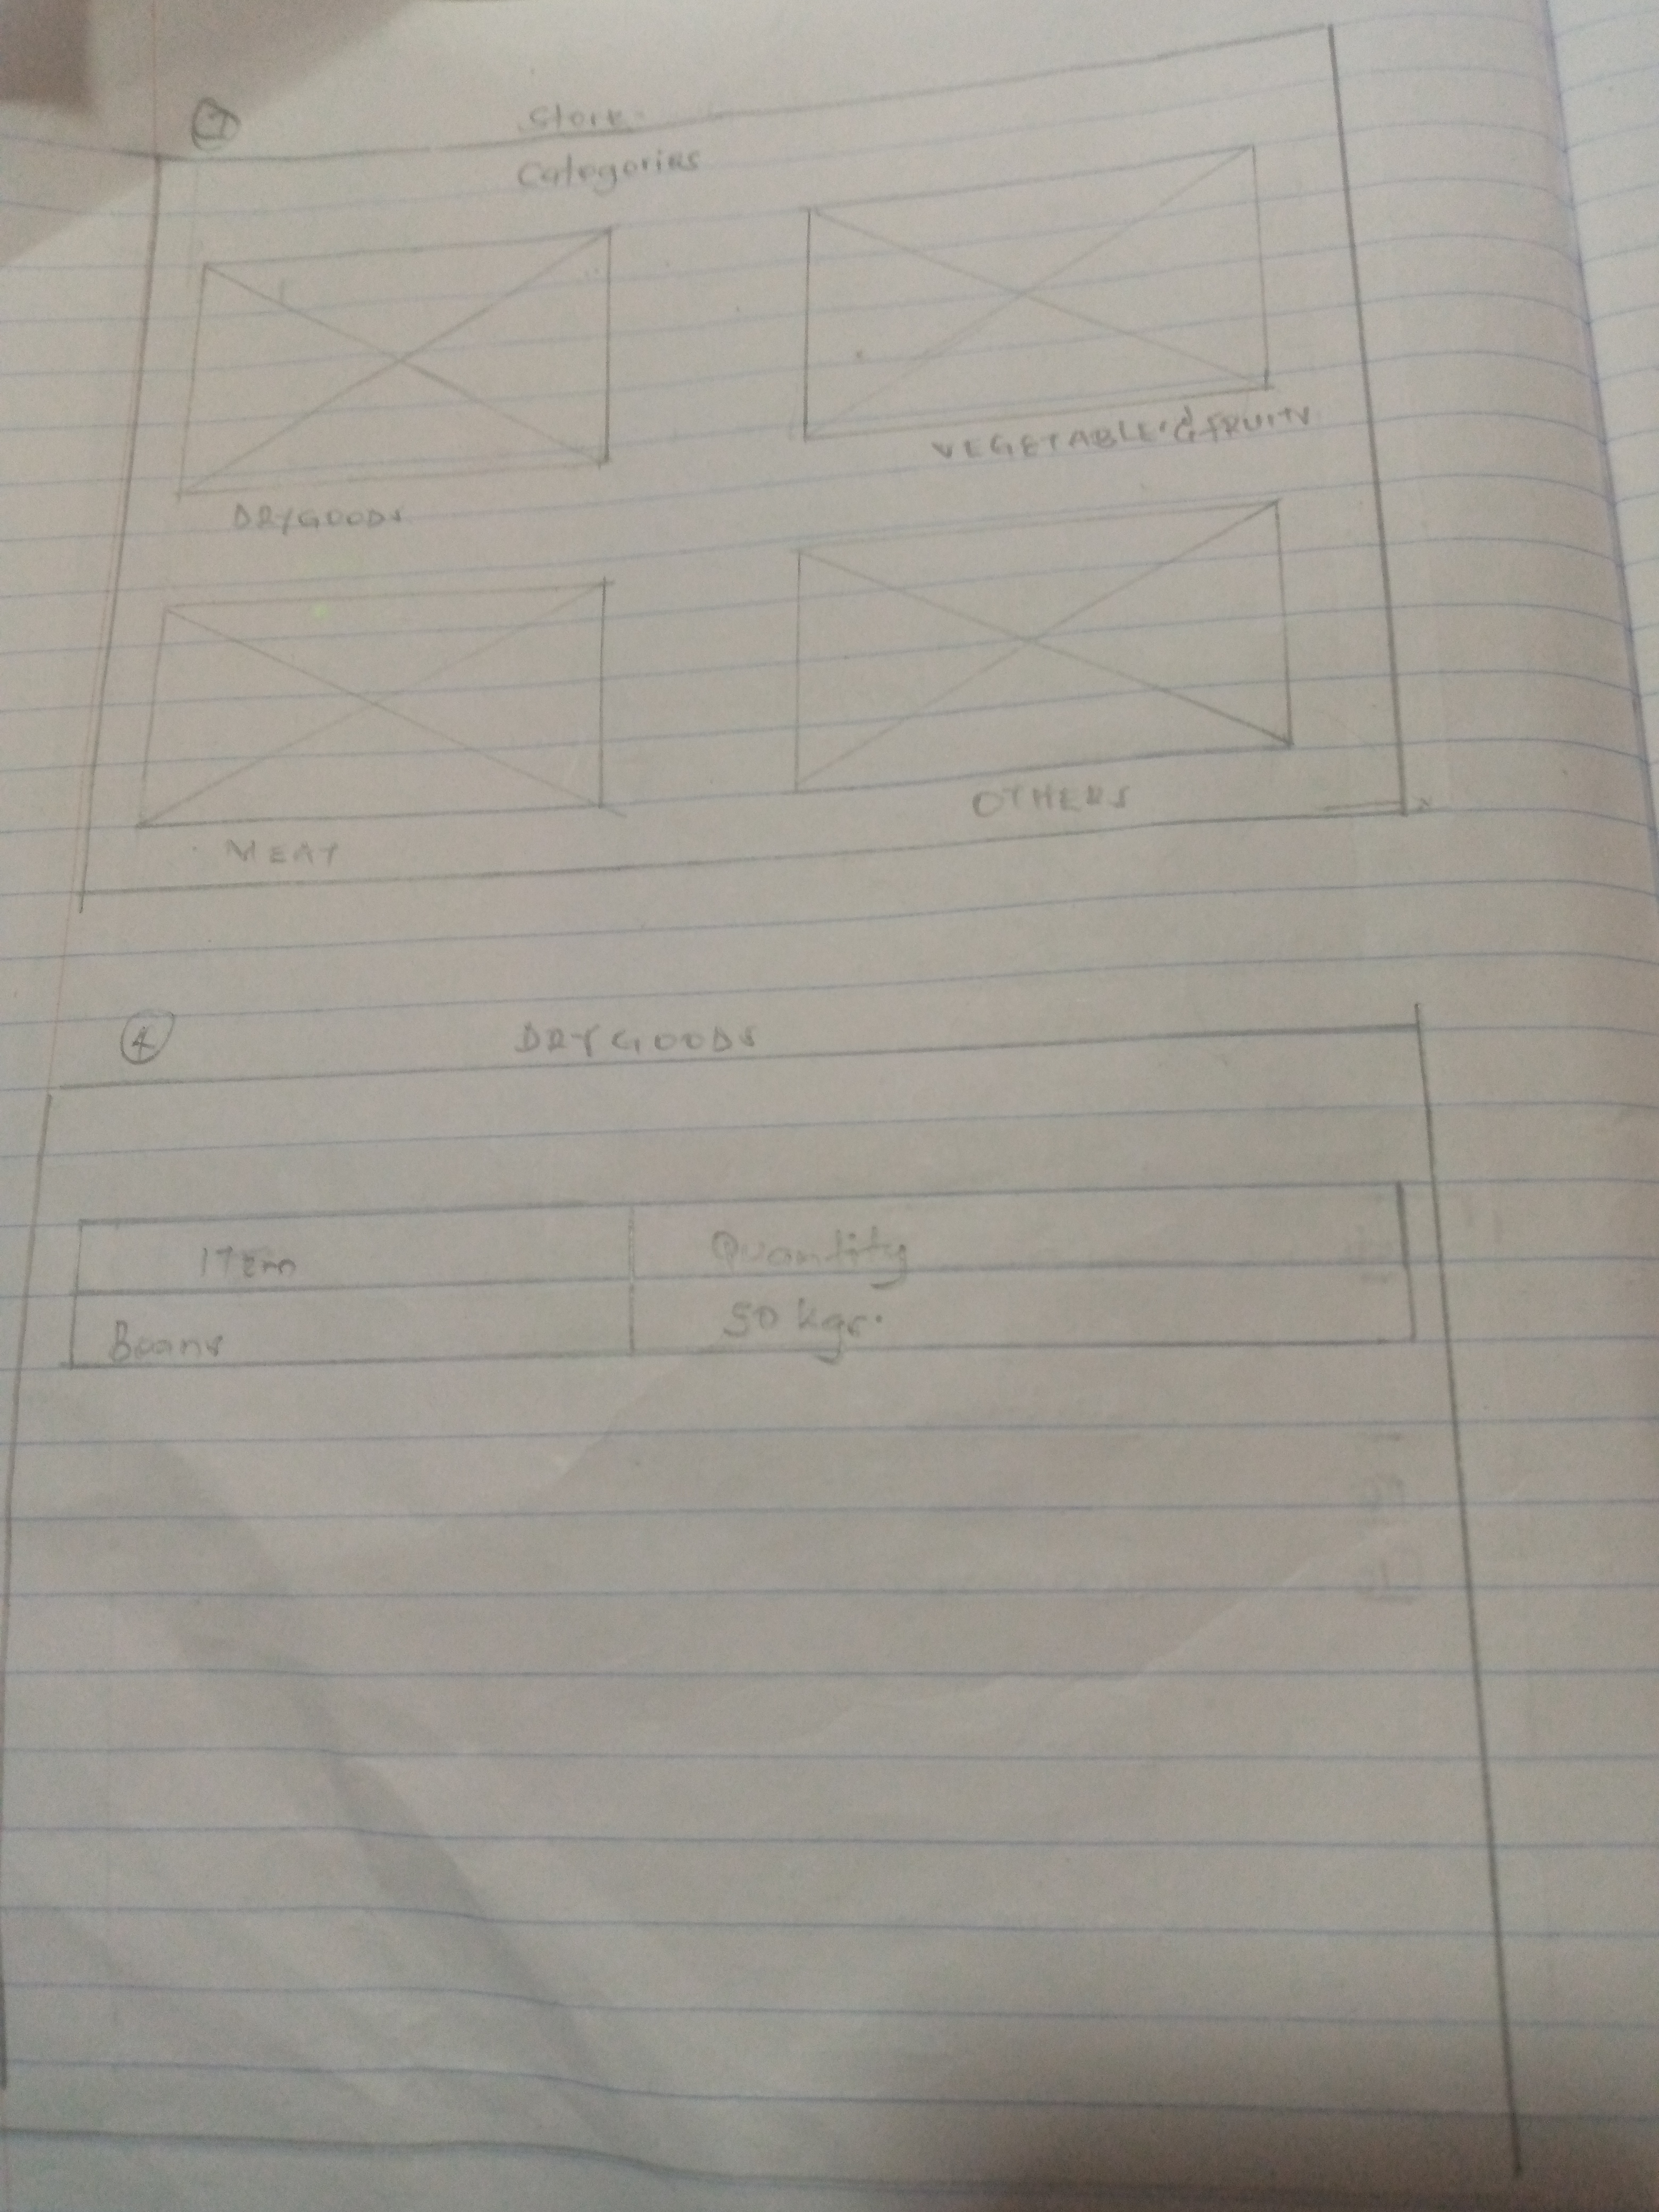 Store
Categories
DRYGOODS
VEGETABLE'S & FRUITS
MEAT
OTHERS
4
DRY GOODS
ITEm Quantity
Beans 50 kgs.